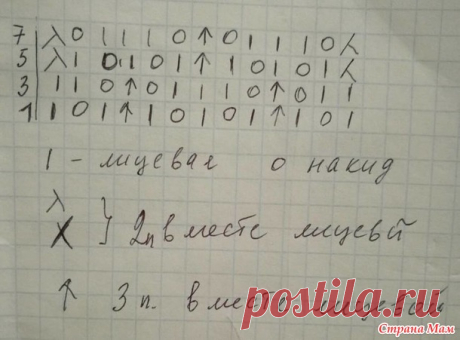 7 | λ 0 1 1 1 0 ↑ 0 1 1 1 0 ⅄
5 | λ 1 0 1 0 1 ↑ 1 0 1 0 1 ⅄
3 | 1 1 0 ↑ 0 1 1 1 0 ↑ 0 1 1
1 | 1 0 1 ↑ 1 0 1 0 1 ↑ 1 0 1
1 - лицевая 0 накид
λ
⅄ } 2п вместе лицевой
↑ 3 п. вместе лицевой
postila.ru
Страна Мам